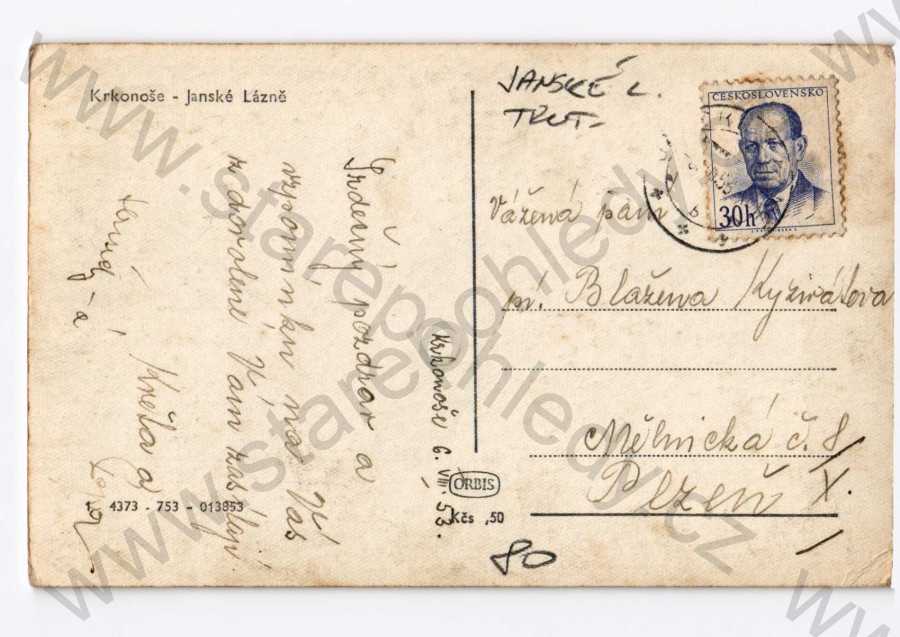 Krkonoše - Janské Lázně
JANSKÉ L.
TRUT-
ČESKOSLOVENSKO
30h
Vážená paní
pí. Blažena Kyzivátova
Mělnická č. 8
Plzeň X.
Krkonoše 6. VIII. 53.
Srdečný pozdrav a
vzpomínku na Vás
z dovolené Vám zasílají
Květa a
4373 - 753 - 013853
ORBIS
Kčs ,50
80
www.starepohledy.cz